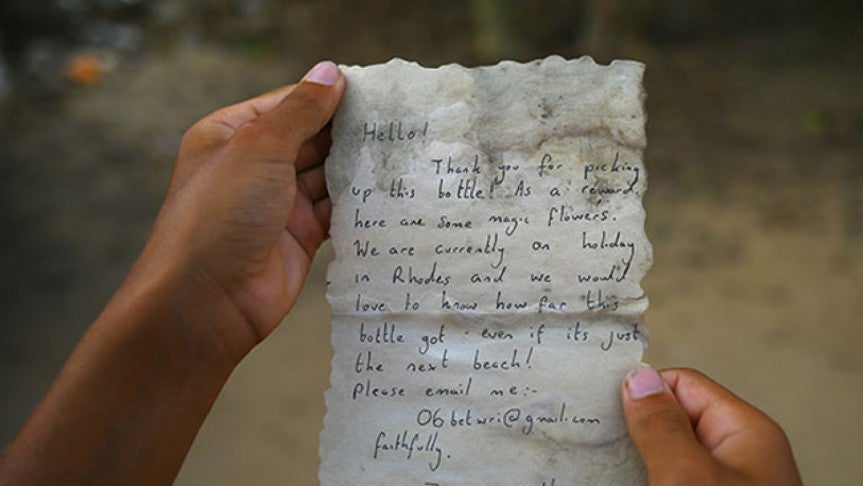 Hello!
Thank you for picking
up this bottle! As a reward
here are some magic flowers.
We are currently on holiday
in Rhodes and we would
love to know how far this
bottle got - even if its just
the next beach!
Please email me:-
06betwri@gmail.com
faithfully.